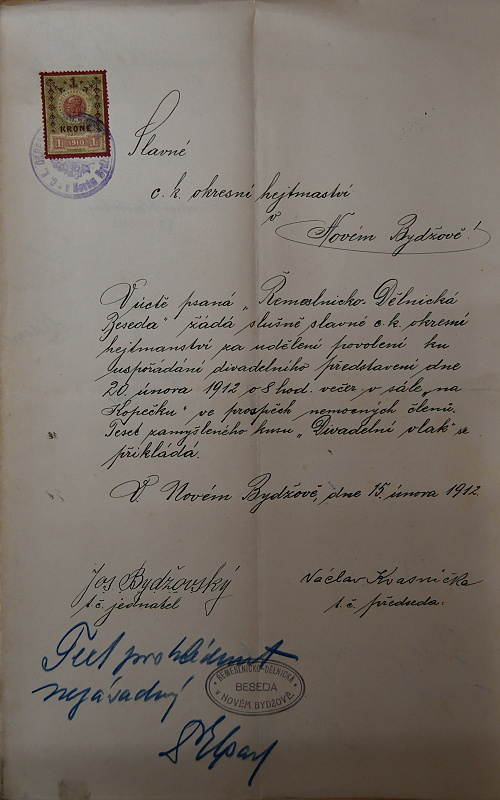 1
KRONE
1 1910 1
Slavné
c. k. okresní hejtmaství
v
Novém Bydžově!
V úctě psaná „Řemeslnicko-Dělnická
Beseda" žádá slušně slavné c. k. okresní
hejtmanství za udělení povolení ku
uspořádání divadelního představení dne
20. února 1912 o 8 hod. večer v sále „na
Kopečku" ve prospěch nemocných členů.
Text zamýšleného kusu „Divadelní vlak" se
přikládá.
V Novém Bydžově, dne 15. února 1912.
Jos Bydžovský
t. č. jednatel
Václav Kvasnička
t. č. předseda.
Text prohlédnut
nezávadný
ŘEMESLNICKO-DĚLNICKÁ
BESEDA
v NOVÉM BYDŽOVĚ